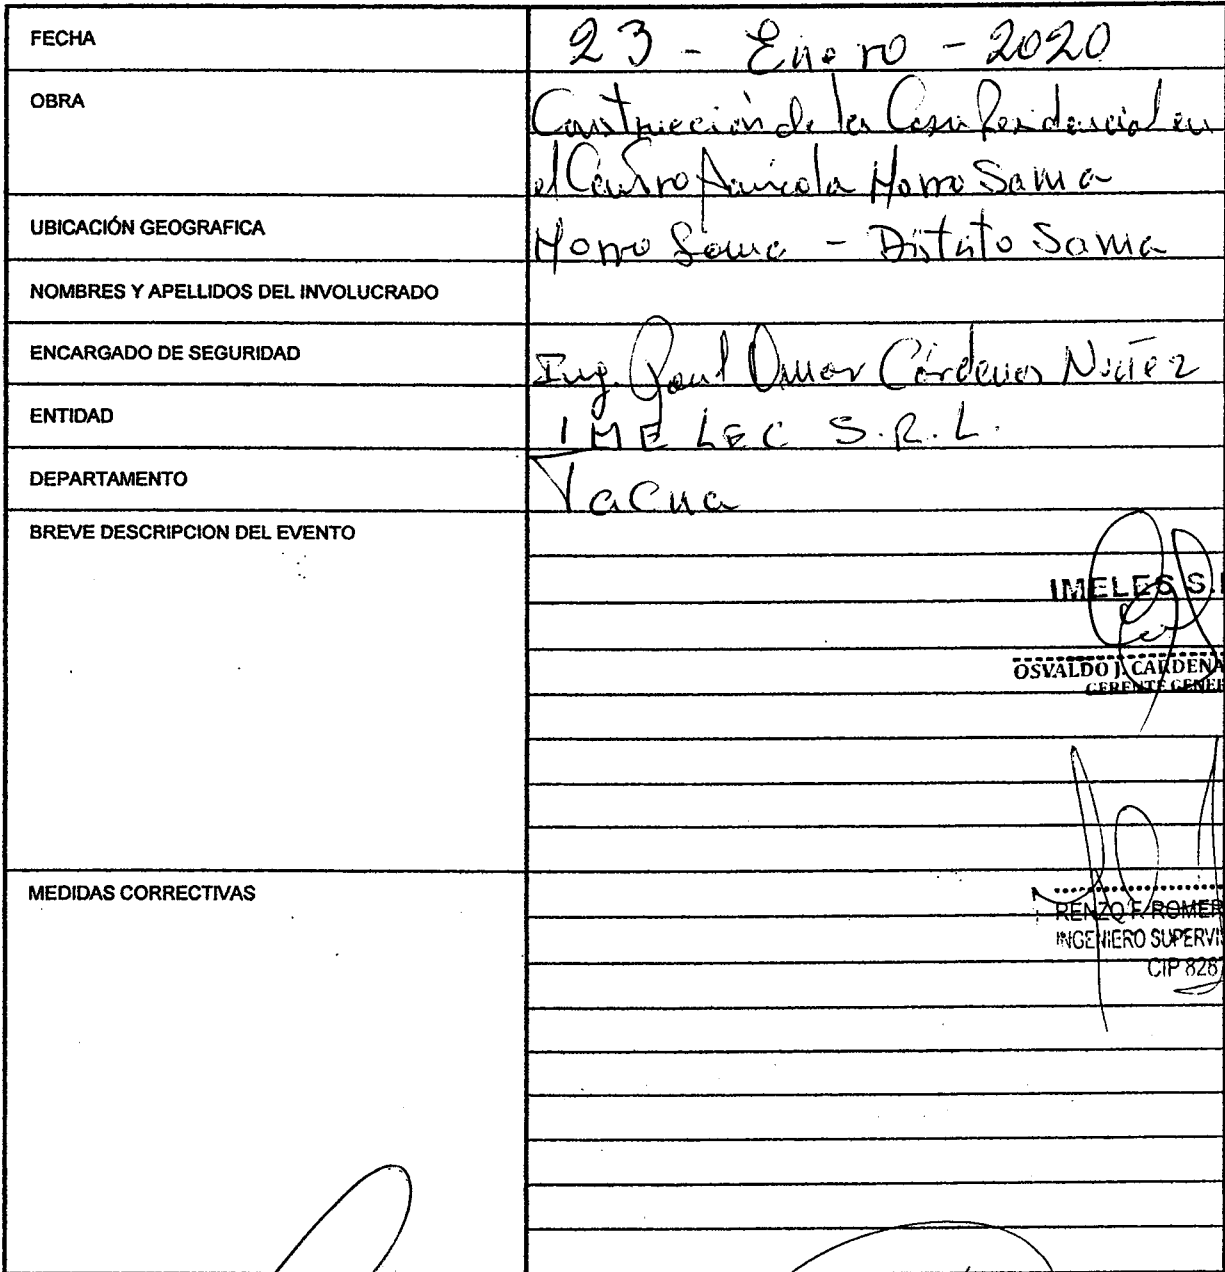 FECHA
23 - Enero - 2020
OBRA
Construcción de la Casa Residencial en
el Centro Acuicola Morro Sama
UBICACIÓN GEOGRAFICA
Morro Sama - Distrito Sama
NOMBRES Y APELLIDOS DEL INVOLUCRADO
ENCARGADO DE SEGURIDAD
Ing. Omar Cárdenas Nuñez
ENTIDAD
IMELEC S.R.L.
DEPARTAMENTO
Tacna
BREVE DESCRIPCION DEL EVENTO
IMELES S.
OSVALDO J. CARDENA
GERENTE GENER
MEDIDAS CORRECTIVAS
RENZO F. ROMER
INGENIERO SUPERVIS
CIP 828